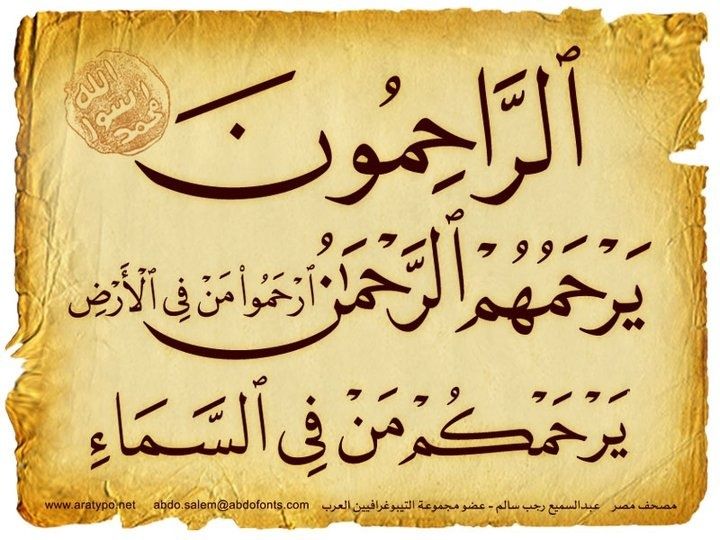 الله
رسول
محمد
ٱلرَّاحِمُونَ
يَرْحَمُهُمْ ٱلرَّحْمَٰنُ ٱرْحَمُوا۟ مَنْ فِي ٱلْأَرْضِ
يَرْحَمْكُمْ مَنْ فِي ٱلسَّمَاءِ
مصحف مصر عبدالسميع رجب سالم - عضو مجموعة التيبوغرافيين العرب abdo.salem@abdofonts.com www.aratypo.net